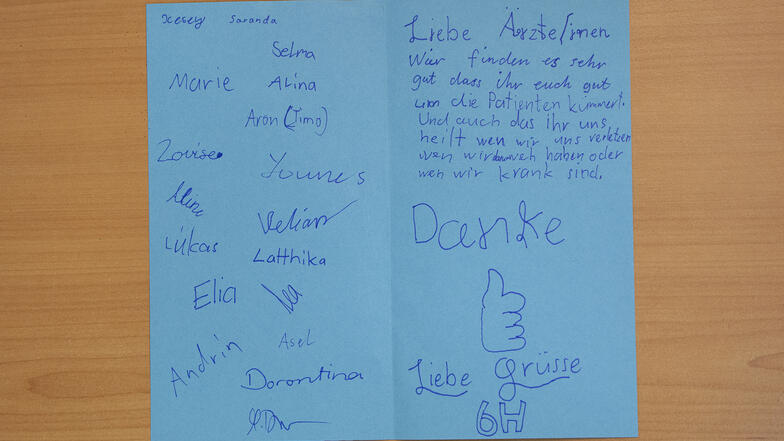 Saranda
Selma
Marie Alina
Aron (Timo)
Younes
Lukas
Latthika
Elia Lea
Asel
Andrin
Dorontina
Liebe Ärzte/innen
Wir finden es sehr
gut dass ihr euch gut
um die Patienten kümmert.
Und auch das ihr uns
heilt wen wir uns verletzen
wen wir haben oder
wen wir krank sind.
Danke
Liebe Grüsse
6H